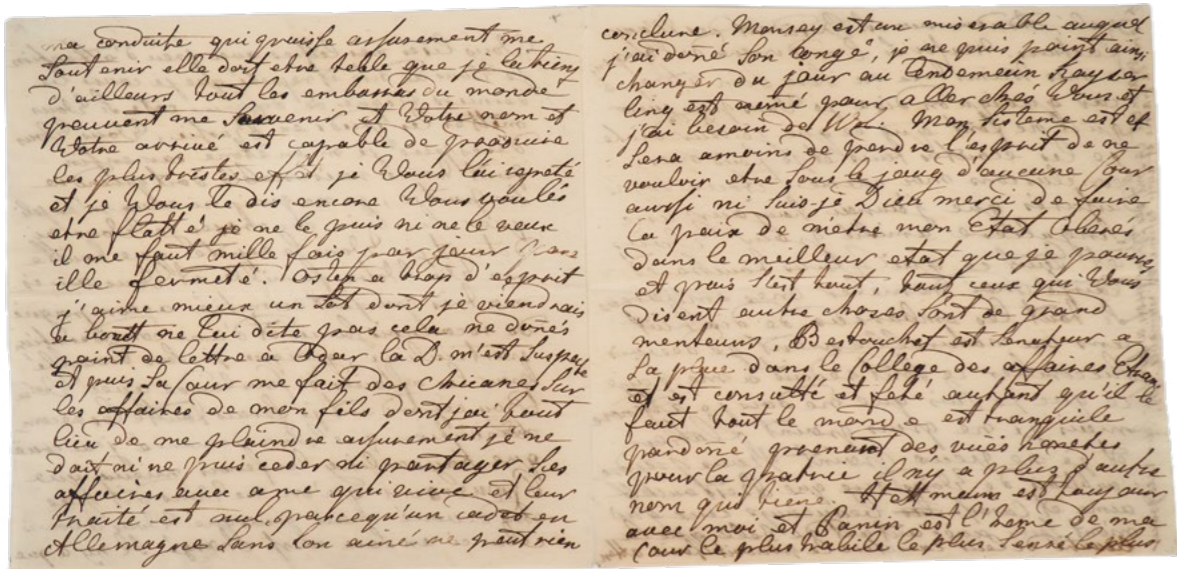 ma conduite qui puisse assurement me
soutenir elle doit etre telle que je la tiens
d'ailleurs tout les embarras du monde
peuvent me survenir et Votre nom et
Votre arrivé est capable de produire
les plus tristes effet je Vous l'ai repeté
et je Vous le dis encore Vous voulés
etre flatté je ne le puis ni ne le veux
il me faut mille fois par jour
ille fermeté. Osten a trop d'esprit
j'aime mieux un sot dont je viendrais
a boutt ne lui dite pas cela ne donés
point de lettre a Odar la D. m'est suspecte
Et puis sa Cour me fait des chicanes sur
les affaires de mon fils dont j'ai tout
lieu de me plaindre assurement je ne
doit ni ne puis ceder ni partager ses
affaires avec ame qui vive et leur
traité est nul parcequ'un cadet en
Allemagne sans son ainé ne peut rien
conclure. Morsey est un miserable auquel
j'ai doné son congé, je ne puis point ainsi
changer du jour au lendemein Kayser
ling est nomé pour aller chés Vous et
j'ai besoin de Mon sisteme est et
sera amoins de perdre l'esprit de ne
vouloir etre sous le joug d'aucune Cour
aussi ni suis-je Dieu merci de faire
la paix de métre mon Etat Oberés
dans le meilleur etat que je pourés
et puis s'est tout, tout ceux qui Vous
disent autre choses sont de grand
menteurs. Bestouchef est senateur a
sa place dans le College des affaires Etran
et est consulté et feté autant qu'il le
faut tout le monde est tranquile
pardoné prenent des vuës
pour la patrie il ny a plus d'autre
nom qui tiene. Hettmann est toujour
avec moi et Panin est l'home de ma
Cour le plus habile le plus sensé le plus